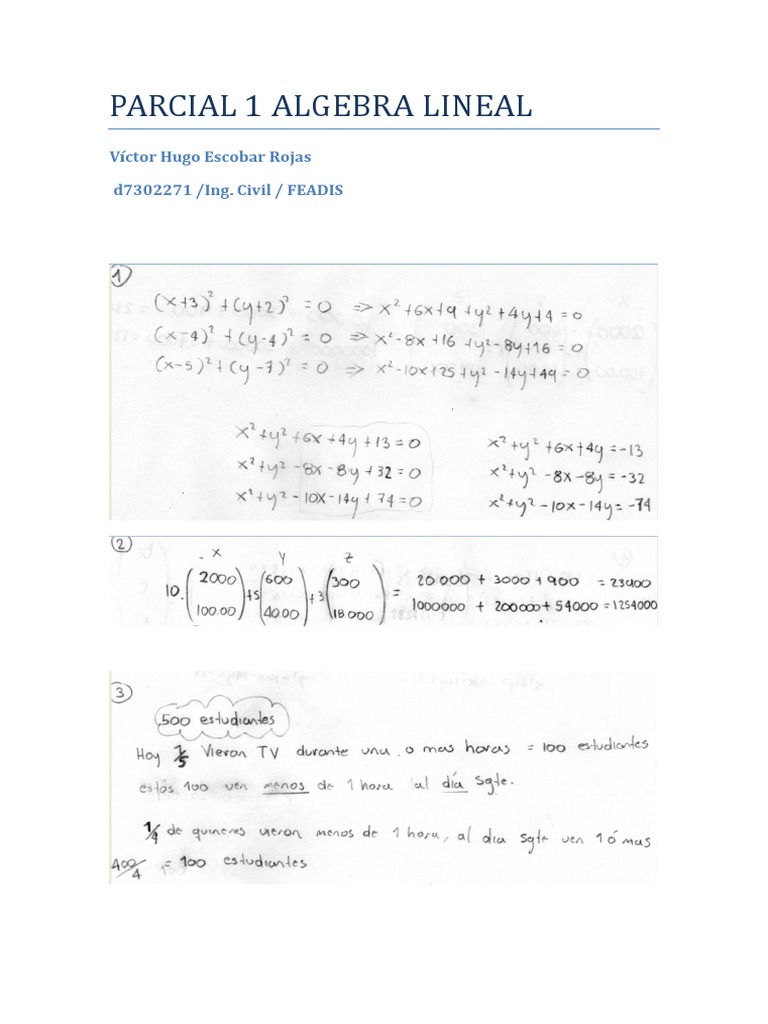 PARCIAL 1 ALGEBRA LINEAL
Víctor Hugo Escobar Rojas
d7302271 /Ing. Civil / FEADIS
1
(x+3)² + (y+2)² = 0 => x² + 6x + 9 + y² + 4y + 4 = 0
(x-4)² + (y-4)² = 0 => x² - 8x + 16 + y² - 8y + 16 = 0
(x-5)² + (y-7)² = 0 => x² - 10x + 25 + y² - 14y + 49 = 0
x² + y² + 6x + 4y + 13 = 0 x² + y² + 6x + 4y = -13
x² + y² - 8x - 8y + 32 = 0 x² + y² - 8x - 8y = -32
x² + y² - 10x - 14y + 74 = 0 x² + y² - 10x - 14y = -74
2
x y z
2000 600 300 20000 + 3000 + 900 = 23900
10. +5 +3 =
100.00 40.00 18.000 1000000 + 200000 + 54000 = 1254000
3
500 estudiantes
Hoy 1/5 Vieron TV durante una o mas horas = 100 estudiantes
estós 100 ven menos de 1 hora al día Sgte.
1/4 de quienes vieron menos de 1 hora, al dia sgte ven 1 ó mas
400/4 = 100 estudiantes